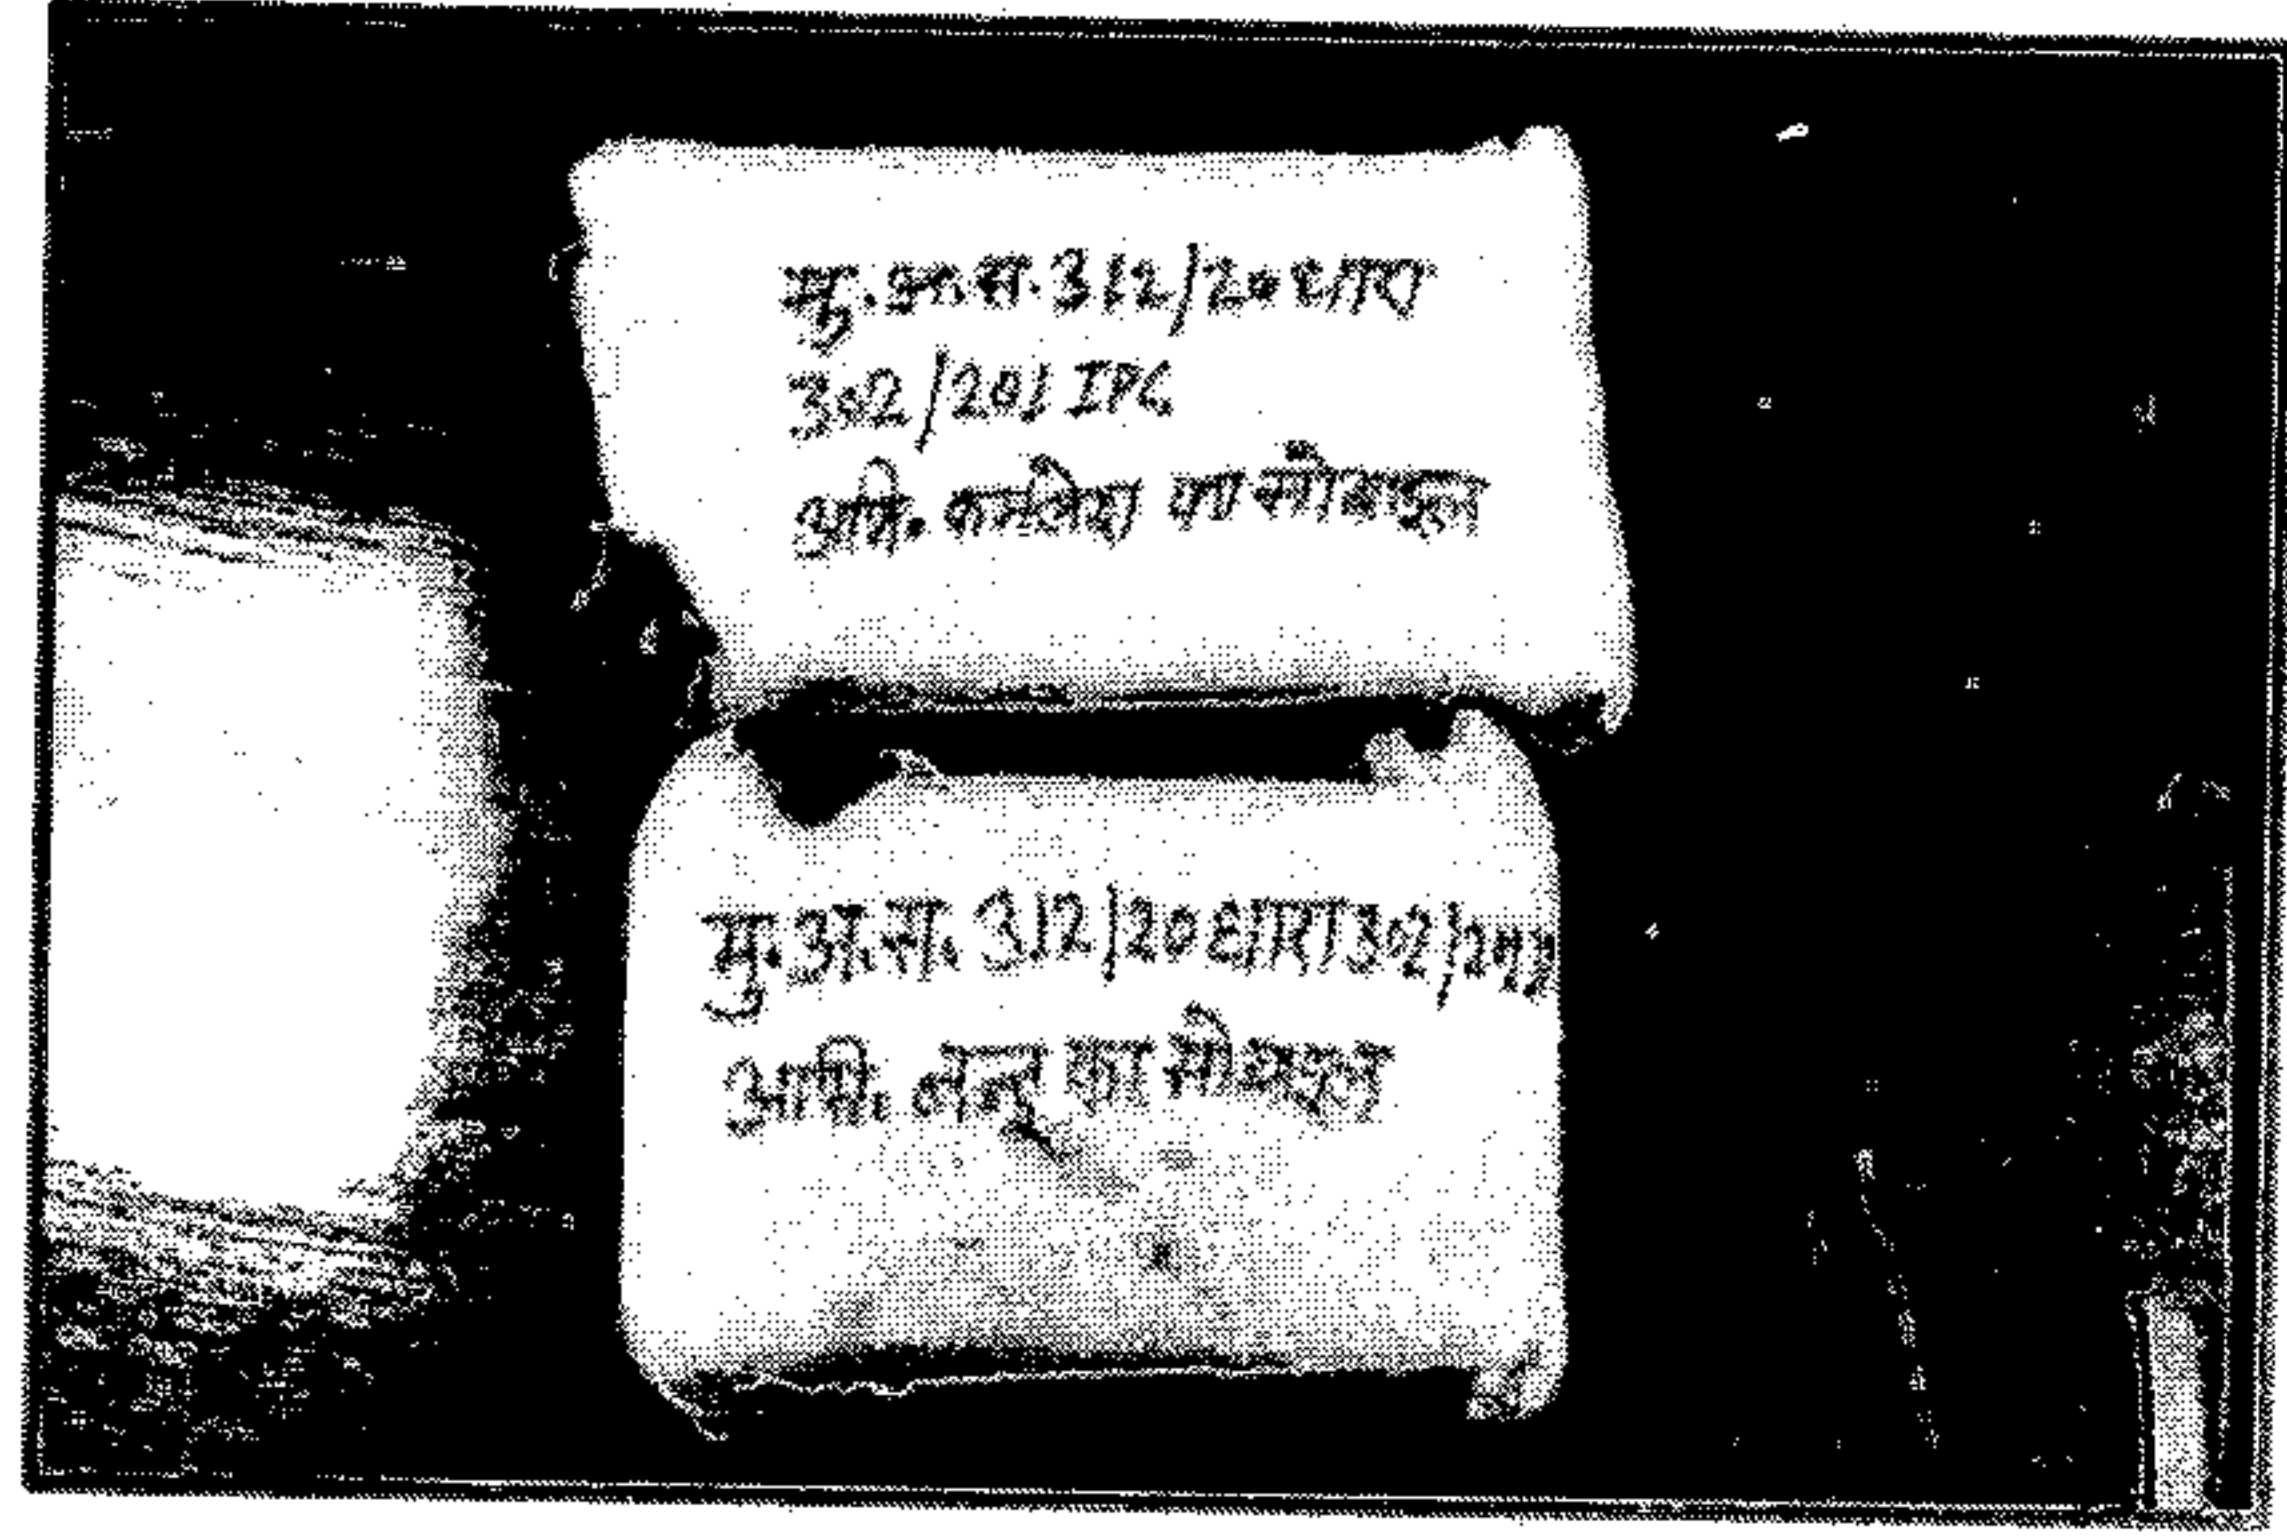 मु.अ.स. 312/20 धारा
302/201 IPC
अभि. कमलेश का मोबाइल
मु.अ.स. 312/20 धारा 302/201
अभि. नन्दू का मोबाइल